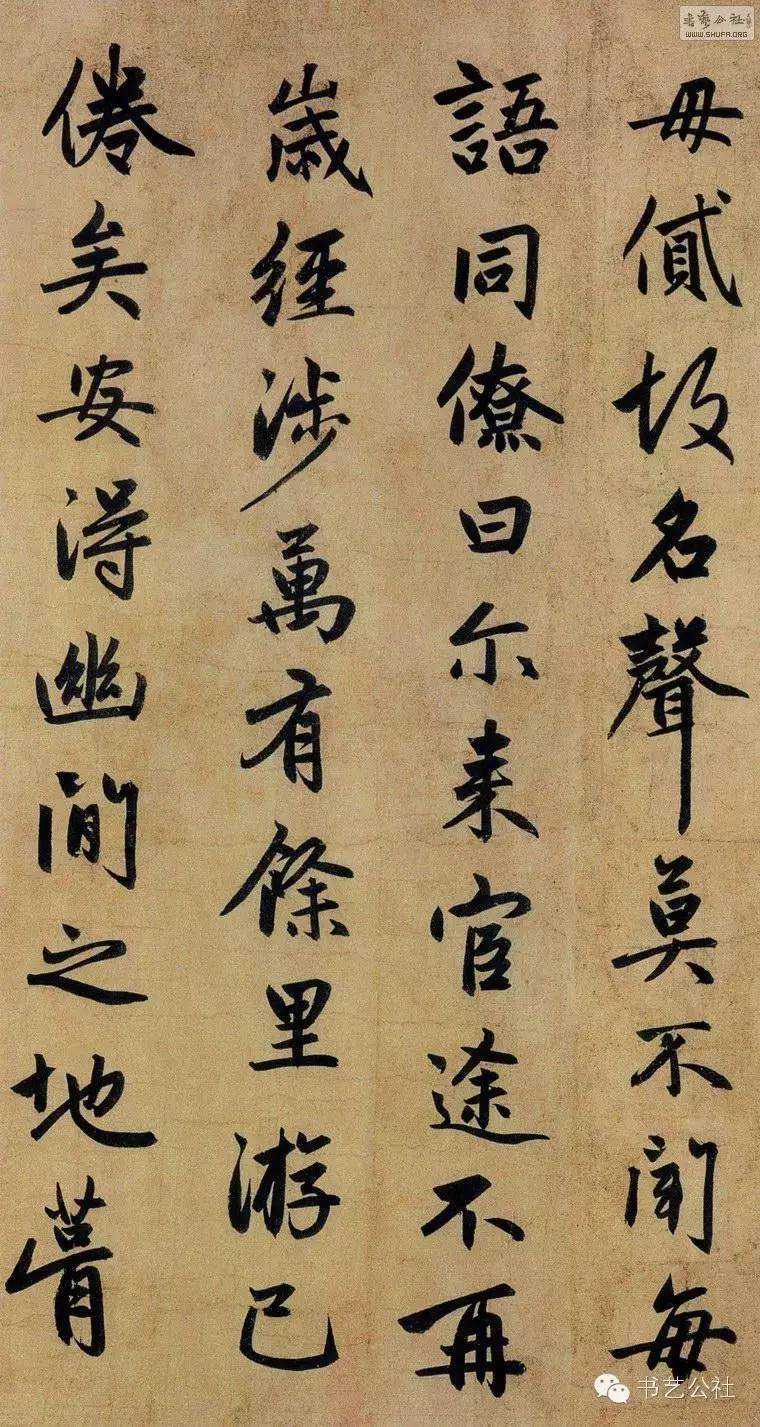 毋貸故名聲莫不聞每
語同僚曰尓来宦途不再
歲經涉萬有餘里游已
倦矣安得幽閒之地
WWW.SHUFA.ORG
书艺公社